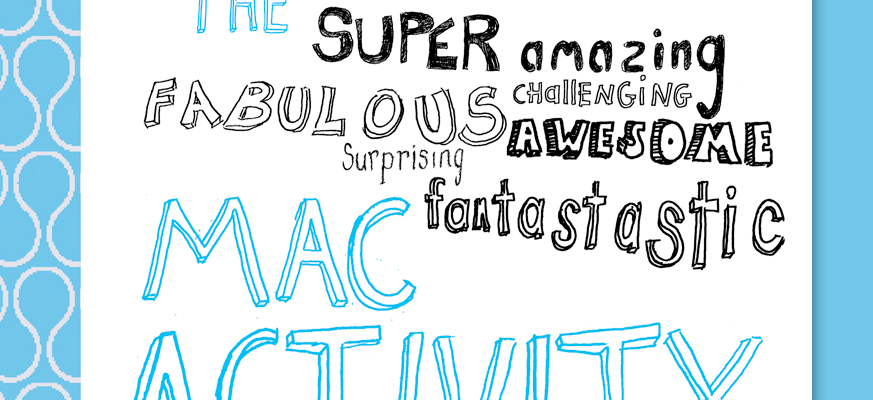 THE
SUPER amazing
FABULOUS CHallENGiNG
AWESOME
Surprising
fantastastic
MAC
ACTIVITY